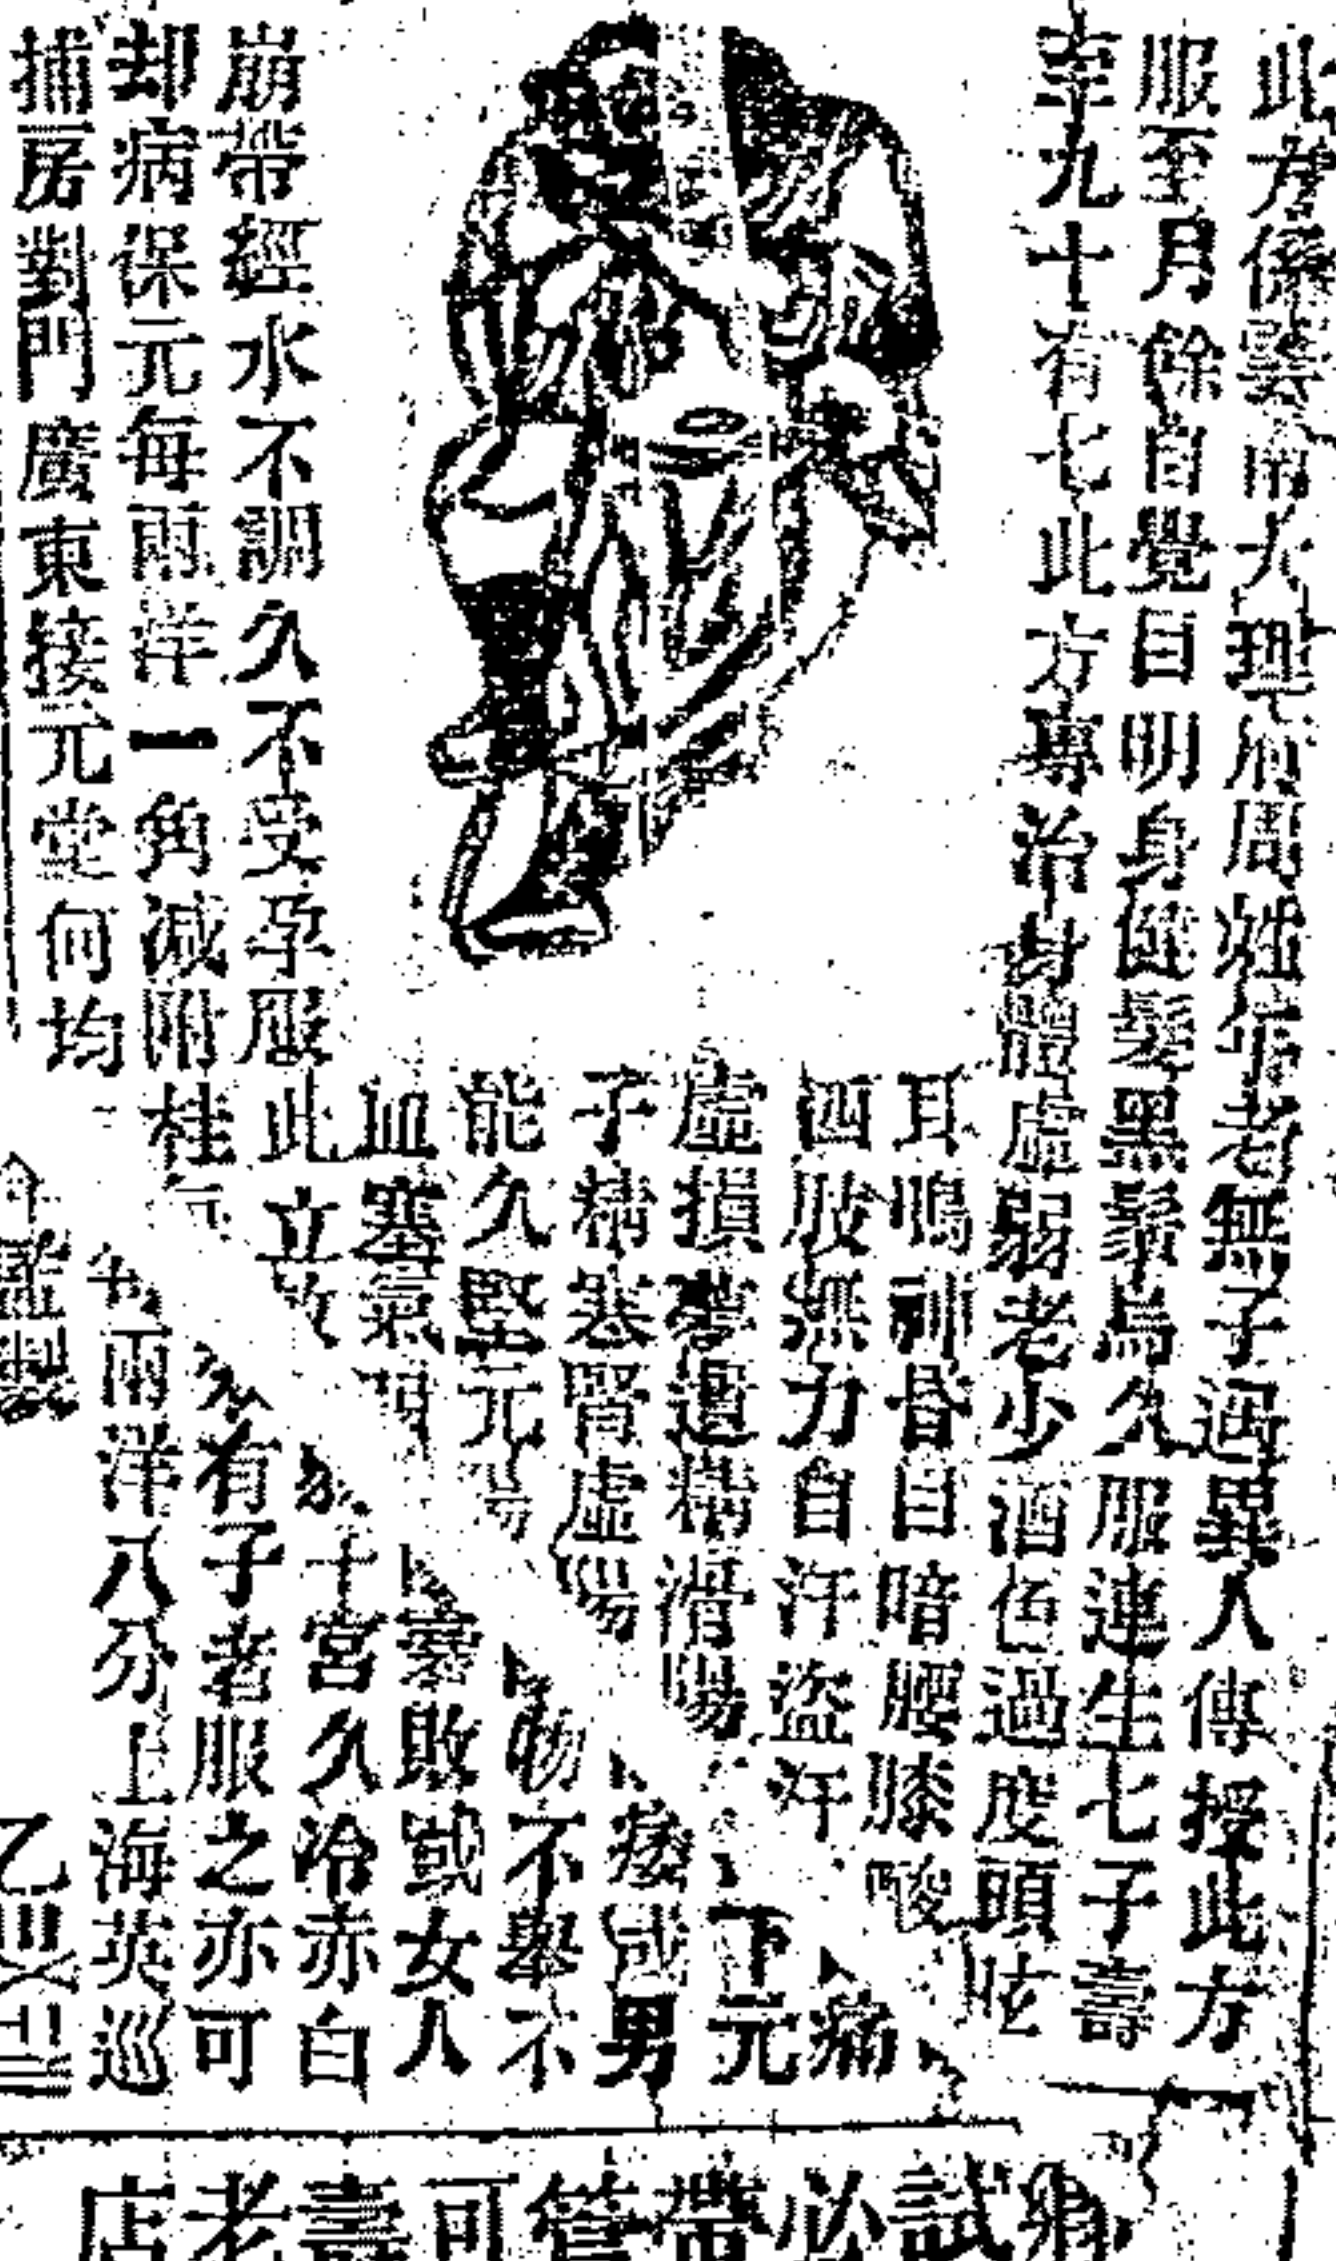 此方係雲南大理府周姓年老無子遇異人傳授此方
服至月餘自覺目明身健髮黑鬚烏久服連生七子壽
至九十有七此方專治身體虛弱老少酒色過度頭眩
耳鳴 昏目暗腰膝酸痛
四肢無力自汗盜汗下元
虛損夢遺精滑陽痿或男
子精寒腎虛陽物不舉不
能久堅元陽 敗或女人
血寒氣 子宮久冷赤白
崩帶經水不調久不受孕服此 有子老服之亦可
却病保元每兩洋一角減附桂 每兩洋八分上海英巡
捕房對門廣東接元堂何均
監製
店老壽可管帶必試